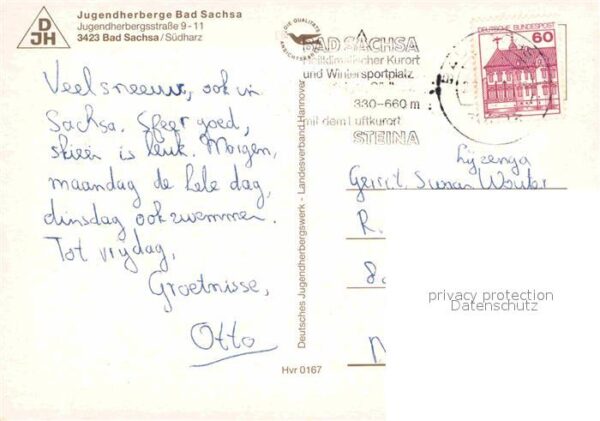 D
JH
Jugendherberge Bad Sachsa
Jugendherbergsstraße 9-11
3423 Bad Sachsa/Südharz
Veel sneeuw, ook in
Sachsa. Sfeer goed,
skiën is leuk. Morgen,
maandag de hele dag,
dinsdag ook zwemmen.
Tot vrijdag,
Groetnisse,
Otto
Hvr 0167
Deutsches Jugendherbergswerk - Landesverband Hannover
DIE QUALITÄTS
BAD SACHSA
Heilklimatischer Kurort
und Wintersportplatz
330-660 m
mit dem Luftkurort
STEINA
DEUTSCHE BUNDESPOST
60
Lijzenga
Gerrit, Susan Wouter
R.
8
privacy protection
Datenschutz